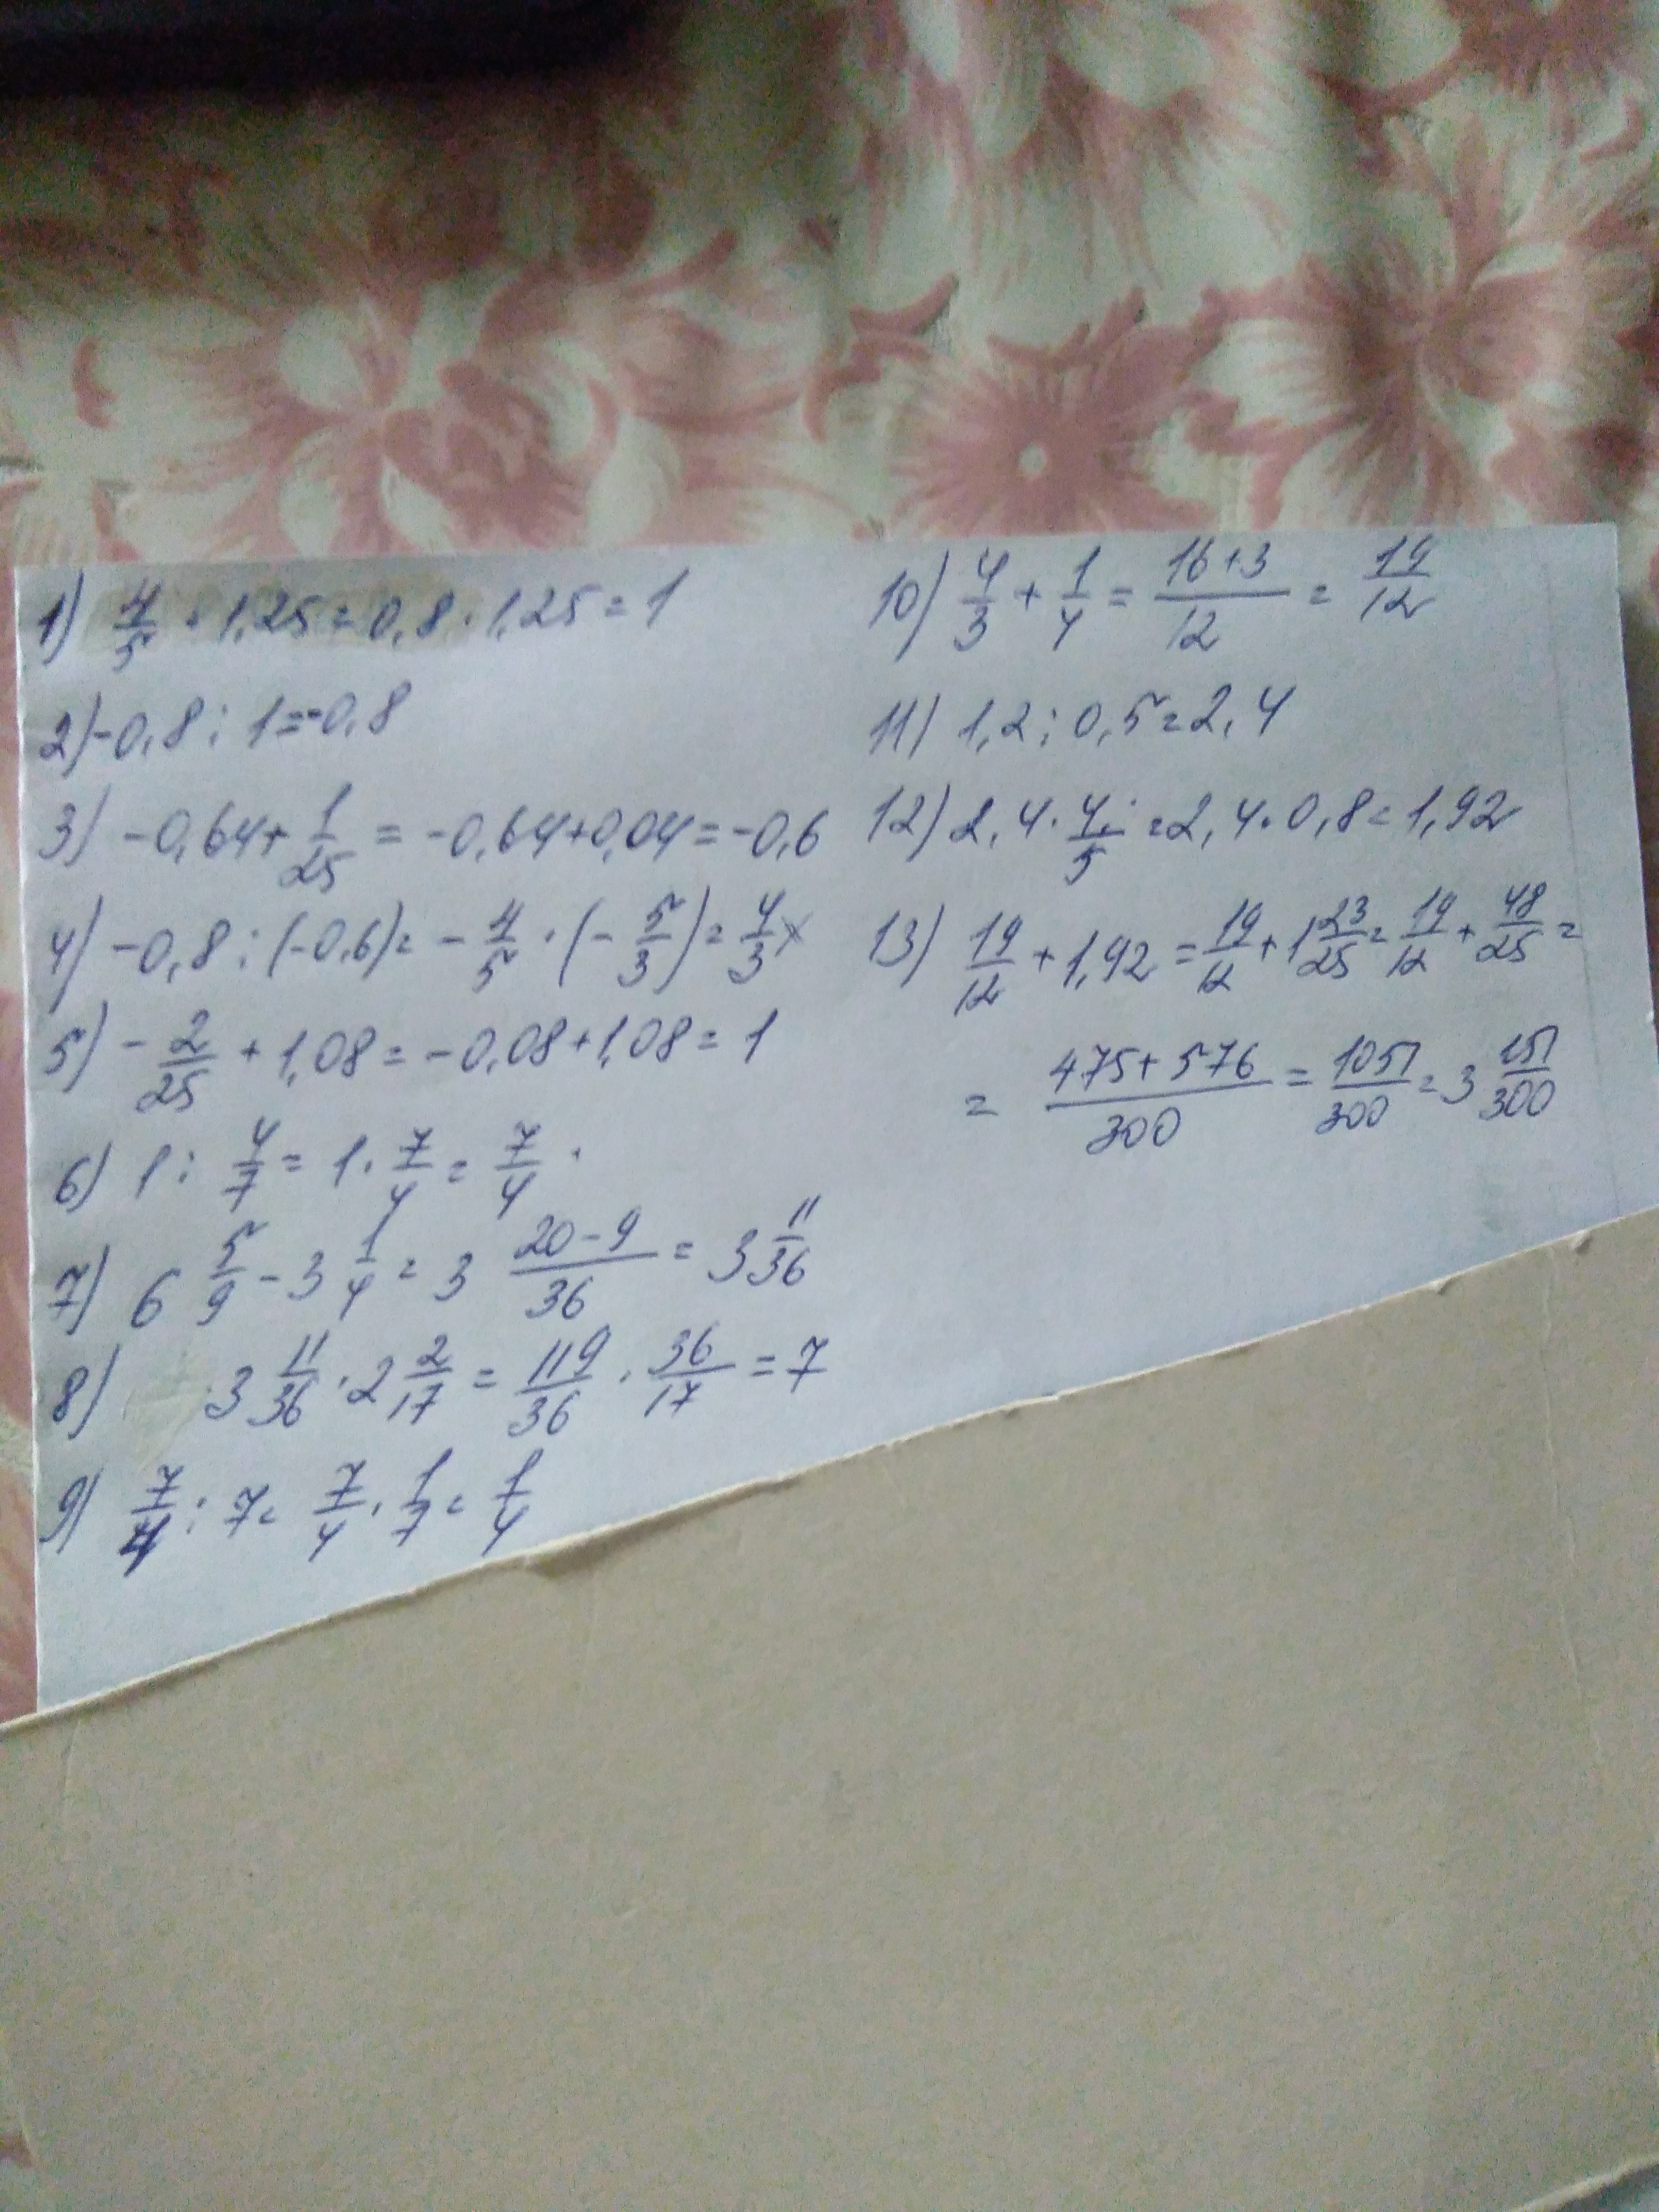 1) 4/5 · 1,25 = 0,8 · 1,25 = 1
2) -0,8 : 1 = -0,8
3) -0,64 + 1/25 = -0,64 + 0,04 = -0,6
4) -0,8 : (-0,6) = - 4/5 · (- 5/3) = 4/3
5) - 2/25 + 1,08 = -0,08 + 1,08 = 1
6) 1 : 4/7 = 1 · 7/4 = 7/4
7) 6 5/9 - 3 1/4 = 3 (20-9)/36 = 3 11/36
8) 3 11/36 · 2 2/17 = 119/36 · 36/17 = 7
9) 7/4 : 7 = 7/4 · 1/7 = 1/4
10) 4/3 + 1/4 = (16+3)/12 = 19/12
11) 1,2 : 0,5 = 2,4
12) 2,4 · 4/5 = 2,4 · 0,8 = 1,92
13) 19/12 + 1,92 = 19/12 + 1 23/25 = 19/12 + 48/25 =
= (475+576)/300 = 1051/300 = 3 151/300